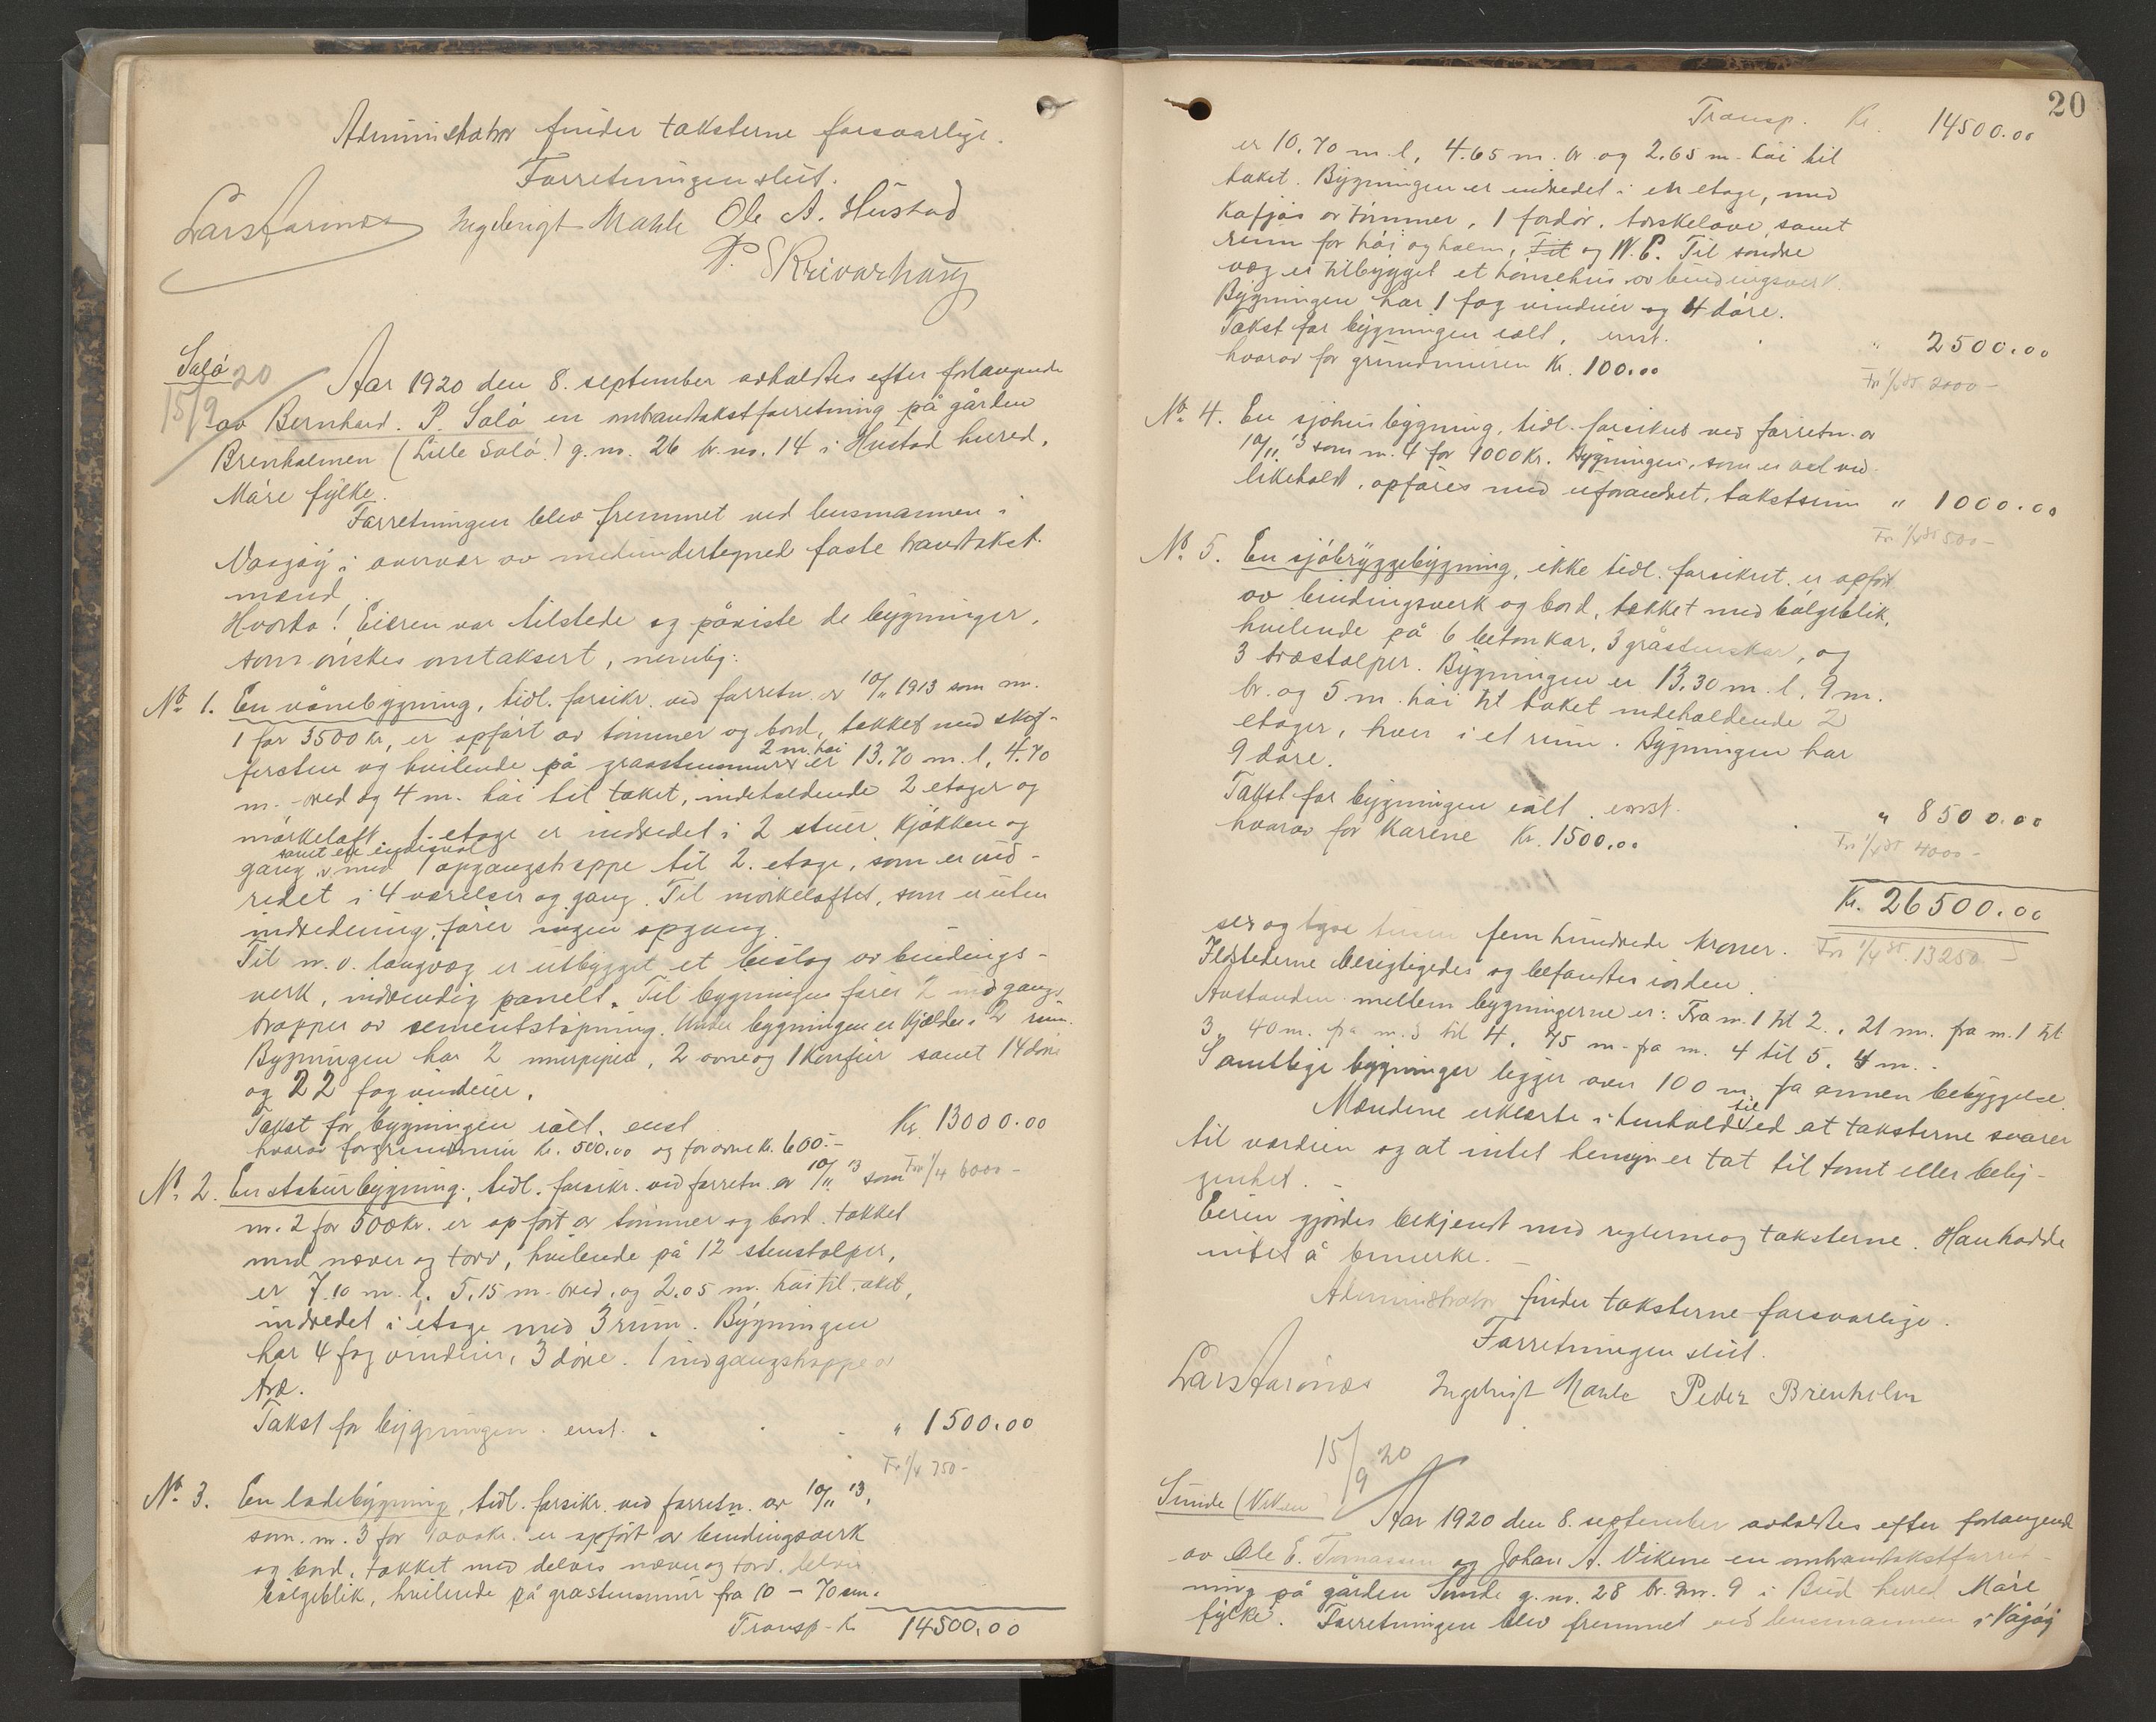 Administrator finder taksterne forsvarlige.
Forretningen slut.
Lars Farinæs Ingebrigt Mahle Ole A. Hustad
P. Skrivarhaug
Saló
15/9 20
Aar 1920 den 8. september avholdtes efter forlangende
av Bernhard. P. Saló en ombrandtakstforretning på gården
Brenholmen (Lille Saló) g. nr. 26 br. nr. 14 i Hustad herred,
Móre fylke.
Forretningen blev fremmet ved lensmannen i
Vaagóy i overvær av medundertegned faste brandtakst-
mænd.
Hvorda! Eieren var tilstede og påviste de bygninger,
som ónskes omtaksert, nemlig:
No. 1. En vånebygning, tidl. forsikr. ved forretn. av 10/11 1913 som nr.
1 for 3500 kr, er opfórt av tómmer og bord, tekket med skif-
fersten og hvilende på graastensmur 2 m. hói er 13.70 m. l, 4.70
m. bred og 4 m. hói til taket, indeholdende 2 etager og
mórkeloft. 1. etage er indredet i 2 stuer, kjókken og
gang med opgangstrappe til 2. etage, som er ind-
redet i 4 værelser og gang. Til mórkeloftet, som er uten
indredning, fórer ingen opgang.
Til n. v. langvæg er utbygget et bislag av bindings-
verk, indvendig panelt. Til bygningen fórer 2 indgangs
trapper av sementstópning. Under bygningen er kjælder i 2 rum.
Bygningen har 2 murpiper, 2 ovne og 1 komfur samt 14 dóre
og 22 fag vinduer.
Takst for bygningen ialt, enst. Kr 13000.00
hvorav for grundmur kr. 500.00 og for ovne kr. 600.-
Frr 1/4 6000 -
No. 2. En stabursbygning, tidl. forsikr. ved forretn. av 10/11 13 som
nr. 2 for 500 kr. er opfórt av tómmer og bord, tekket
med næver og torv, hvilende på 12 stenstolper,
er 7.10 m. l. 5.15 m. bred, og 2.05 m. hói til taket,
indredet i 1 etage med 3 rum. Bygningen
har 4 fag vinduer, 3 dóre. 1 indgangstrappe av
træ.
Takst for bygningen enst. " 1500.00
Frr 1/4 750 -
No. 3. En ladebygning, tidl. forsikr. ved forretn. av 10/11 13,
som nr. 3 for 1000 kr. er opfórt av bindingsverk
og bord, tækket med delvis næver og torv, delvis
bólgeblik, hvilende på graastensmur fra 10 - 70 cm.
Transp. kr 14500.00
20
Transp. Kr. 14500.00
er 10.70 m. l, 4.65 m. br. og 2.65 m. hói til
taket. Bygningen er indredet i en etage, med
kofjós av tómmer, 1 fordór, tórskelóve, samt
rum for hói og halm, Til og W. C. Til sóndre
væg er tilbygget et hónsehus av bindingsverk.
Bygningen har 1 fag vinduer og 4 dóre.
Takst for bygningen ialt, enst. " 2500.00
hvorav for grundmuren Kr. 100.00
Frr 1/4 2000 -
No. 4. En sjóhusbygning, tidl. forsikret ved forretn. av
10/11 13 som nr. 4 for 1000 kr. Bygningen, som er vel ved-
likeholdt, opfóres med uforandret, takstsum " 1000.00
Frr 1/4 500 -
No. 5. En sjóbryggebygning, ikke tidl. forsikret, er opfórt
av bindingsverk og bord, tekket med bólgeblik,
hvilende på 6 betonkar, 3 gråstenskar, og
3 træstolper. Bygningen er 13.30 m. l, 9 m.
br. og 5 m. hói til taket indeholdende 2
etager, hver i et rum. Bygningen har
9 dóre.
Takst for bygningen ialt, enst. " 8500.00
hvorav for karene Kr. 1500.00
Frr 1/4 4000 -
Kr. 26500.00
seks og tyve tusen fem hundrede kroner.
Frr 1/4 13250 -
Ildstederne besigtigedes og befandtes i orden.
Avstanden mellem bygningerne er: Fra nr. 1 til 2, 21 m. fra nr. 1 til
3, 40 m. fra nr. 3 til 4, 45 m. fra nr. 4 til 5, 4 m.
Samtlige bygninger ligger over 100 m. fra annen bebyggelse.
Mændene erklærte i henhold til ed at taksterne svarer
til værdien og at intet hensyn er tat til tomt eller belig-
genhet.
Eieren gjordes bekjendt med reglerne og taksterne. Han hadde
intet å bemerke.
Administrator finder taksterne forsvarlige.
Forretningen slut.
Lars Farinæs Ingebrigt Mahle Peder Brenholm
15/9 20
Sunde (Viken)
Aar 1920 den 8. september avholdtes efter forlangende
av Ole E. Tomassen og Johan A. Vikene en ombrandtakstforret-
ning på gården Sunde g. nr. 28 br. nr. 9 i Bud herred Móre
fylke. Forretningen blev fremmet ved lensmannen i Vågóy